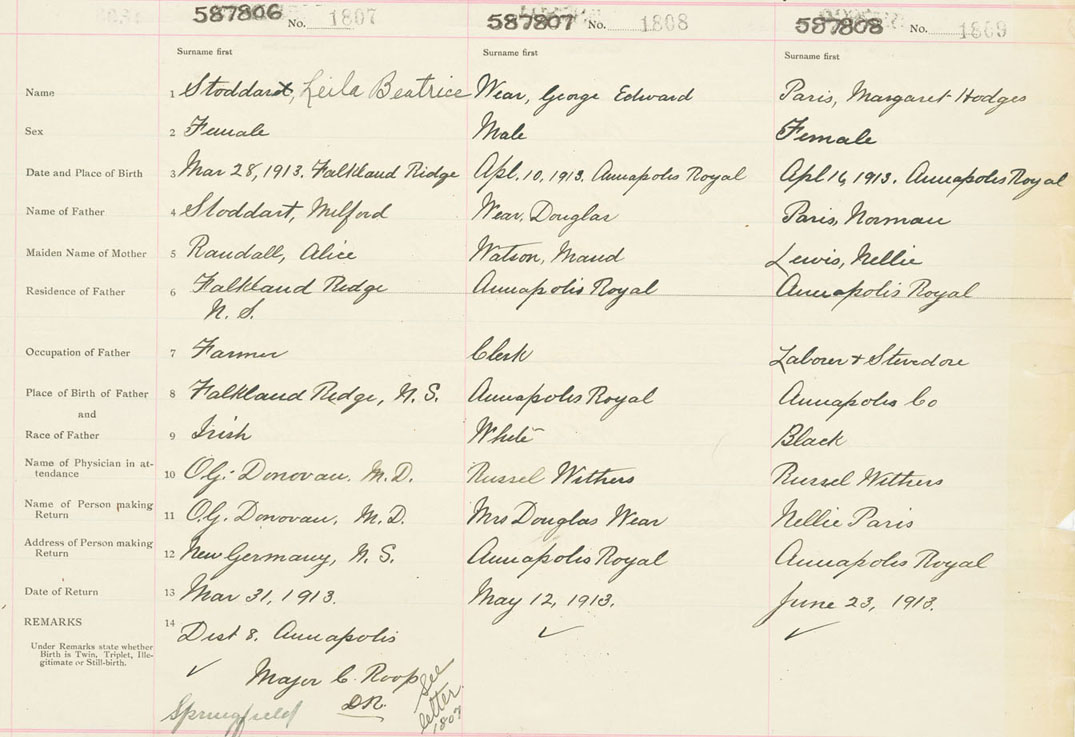 587806 No. 1807 587807 No. 1808 587808 No. 1809
Surname first Surname first Surname first
Name 1 Stoddart, Leila Beatrice Wear, George Edward Paris, Margaret Hodges
Sex 2 Female Male Female
Date and Place of Birth 3 Mar 28, 1913. Falkland Ridge Apl. 10, 1913. Annapolis Royal Apl 16, 1913. Annapolis Royal
Name of Father 4 Stoddart, Milford Wear, Douglas Paris, Norman
Maiden Name of Mother 5 Randall, Alice Watson, Maud Lewis, Nellie
Residence of Father 6 Falkland Ridge Annapolis Royal Annapolis Royal
N. S.
Occupation of Father 7 Farmer Clerk Laborer & Stevedore
Place of Birth of Father 8 Falkland Ridge, N. S. Annapolis Royal Annapolis Co
and
Race of Father 9 Irish White Black
Name of Physician in at-
tendance 10 O.G. Donovan. M.D. Russel Withers Russel Withers
Name of Person making
Return 11 O.G. Donovan, M.D. Mrs Douglas Wear Nellie Paris
Address of Person making
Return 12 New Germany, N. S. Annapolis Royal Annapolis Royal
Date of Return 13 Mar 31, 1913. May 12, 1913. June 23, 1913.
REMARKS 14 ✓ ✓
Dist 8. Annapolis
Under Remarks state whether
Birth is Twin, Triplet, Ille-
gitimate or Still-birth.
✓ Major C. Roop
D.R.
See
letter
1807
Springfield